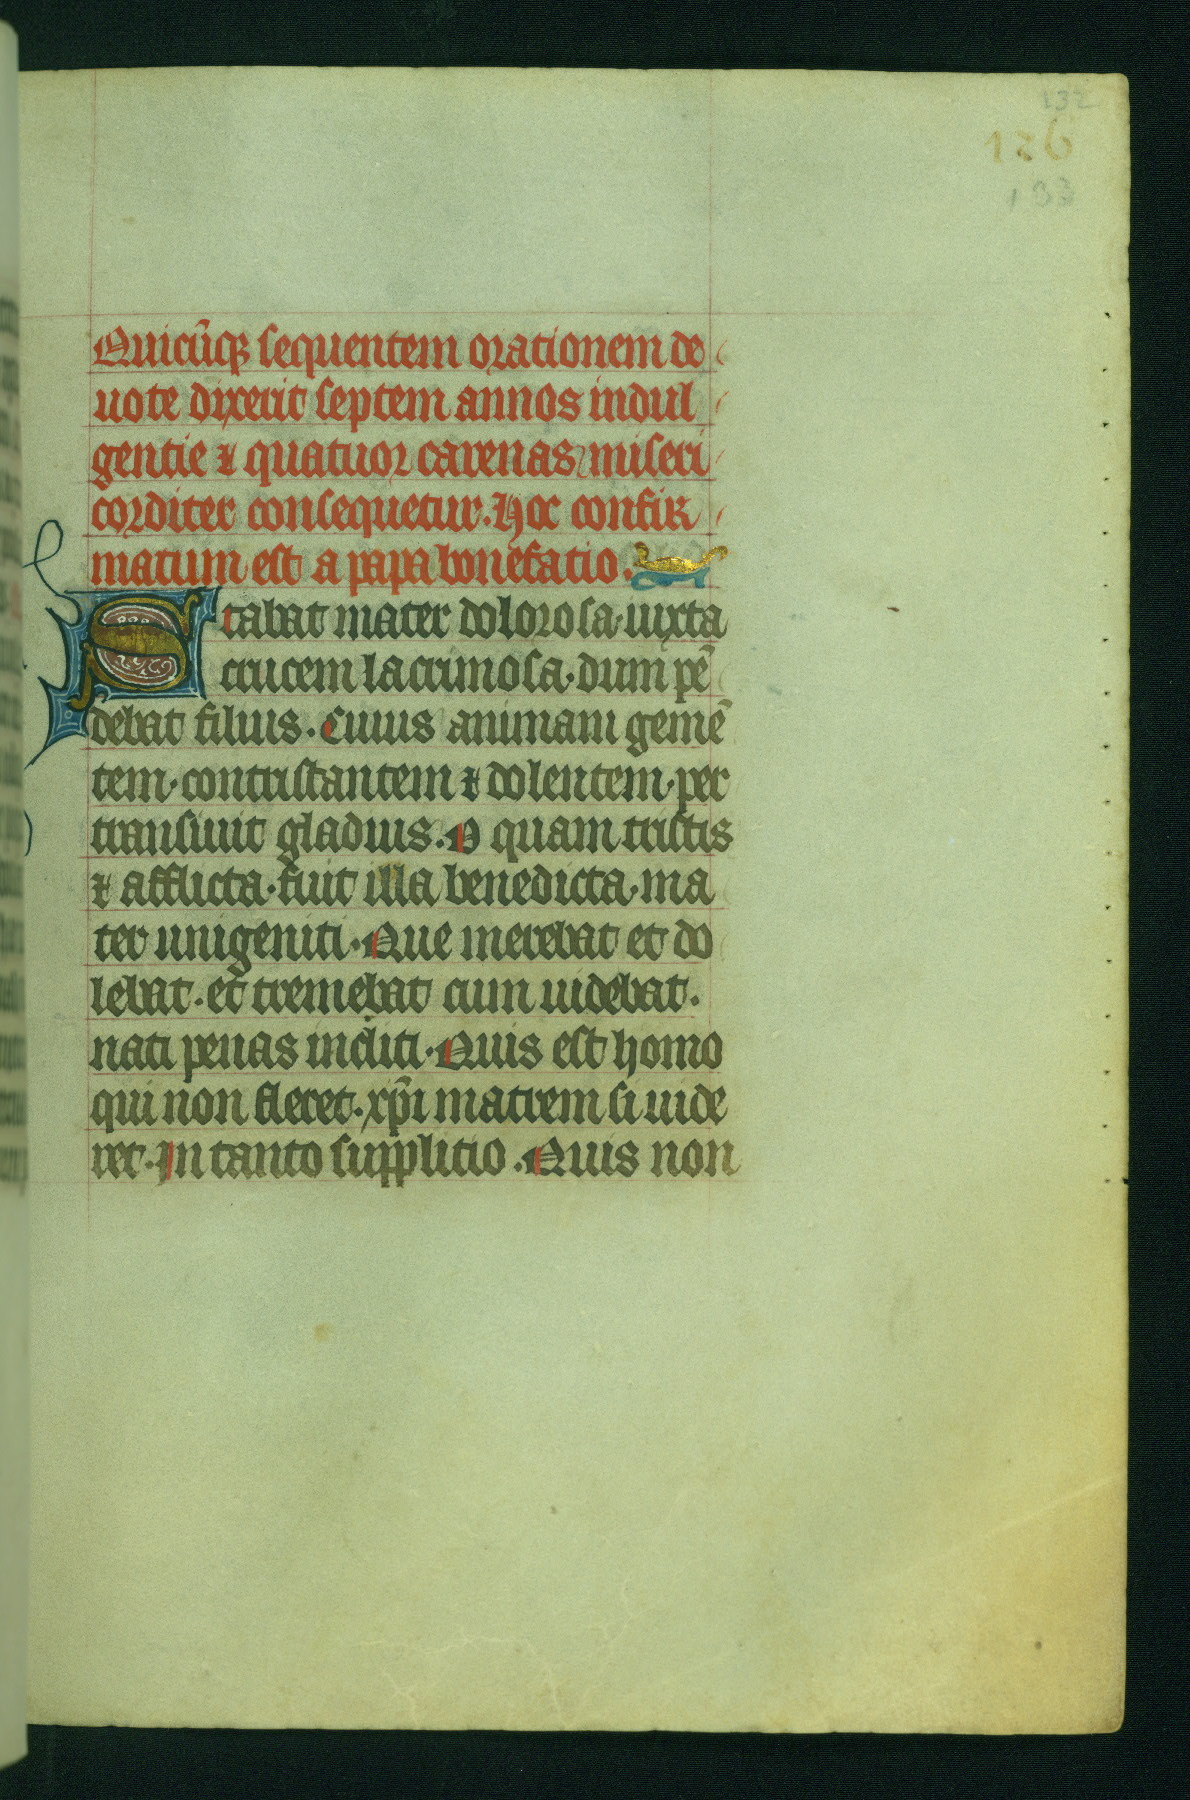 132
126
133
Quicūq; sequentem orationem de
uote dixerit septem annos indul
gentie & quatuor carenas miseri
corditer consequetur. Hoc confir
matum est a papa bonefatio.
Stabat mater dolorosa. iuxta
crucem lacrimosa. dum pē
debat filius. Cuius animam gemē
tem. contristantem & dolentem. per
transiuit gladius. O quam tristis
& afflicta. fuit illa benedicta. ma
ter unigeniti. Que merebat et do
lebat. et tremebat cum uidebat.
nati penas incliti. Quis est homo
qui non fleret. xp̄i matrem si uide
ret. In tanto supplitio. Quis non